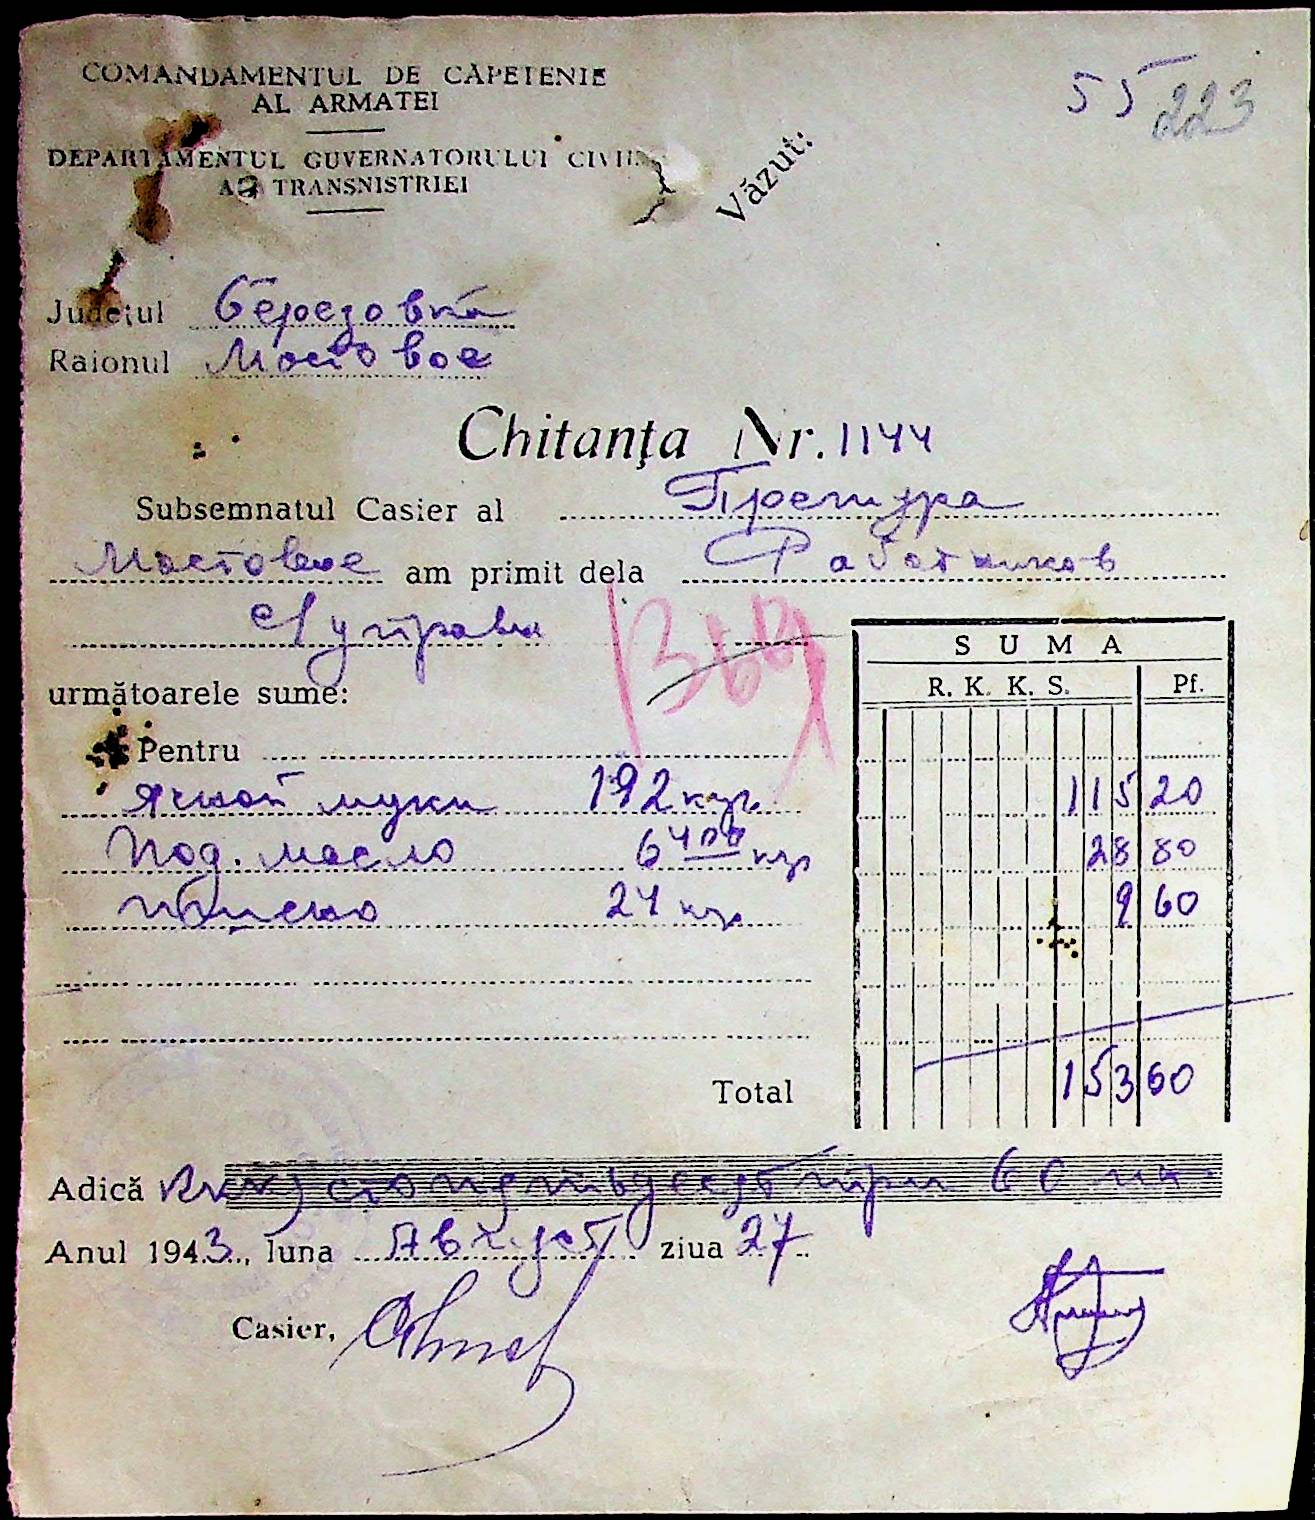 COMANDAMENTUL DE CĂPETENIE
AL ARMATEI
55 223
DEPARTAMENTUL GUVERNATORULUI CIVIL
AL TRANSNISTRIEI
Văzut:
Județul Березовка
Raionul Мостовое
Chitanța Nr. 1144
Subsemnatul Casier al Претура
Мостовое am primit dela Работников
управы
următoarele sume:
SUMA
R. K. K. S. Pf.
Pentru
Ячной муки 192 кгр. 115 20
Под. масло 6 400 кгр 28 80
24 кгр 9 60
Total 153 60
Adică сто пятьдесят три 60
Anul 1943, luna Август ziua 27
Casier,